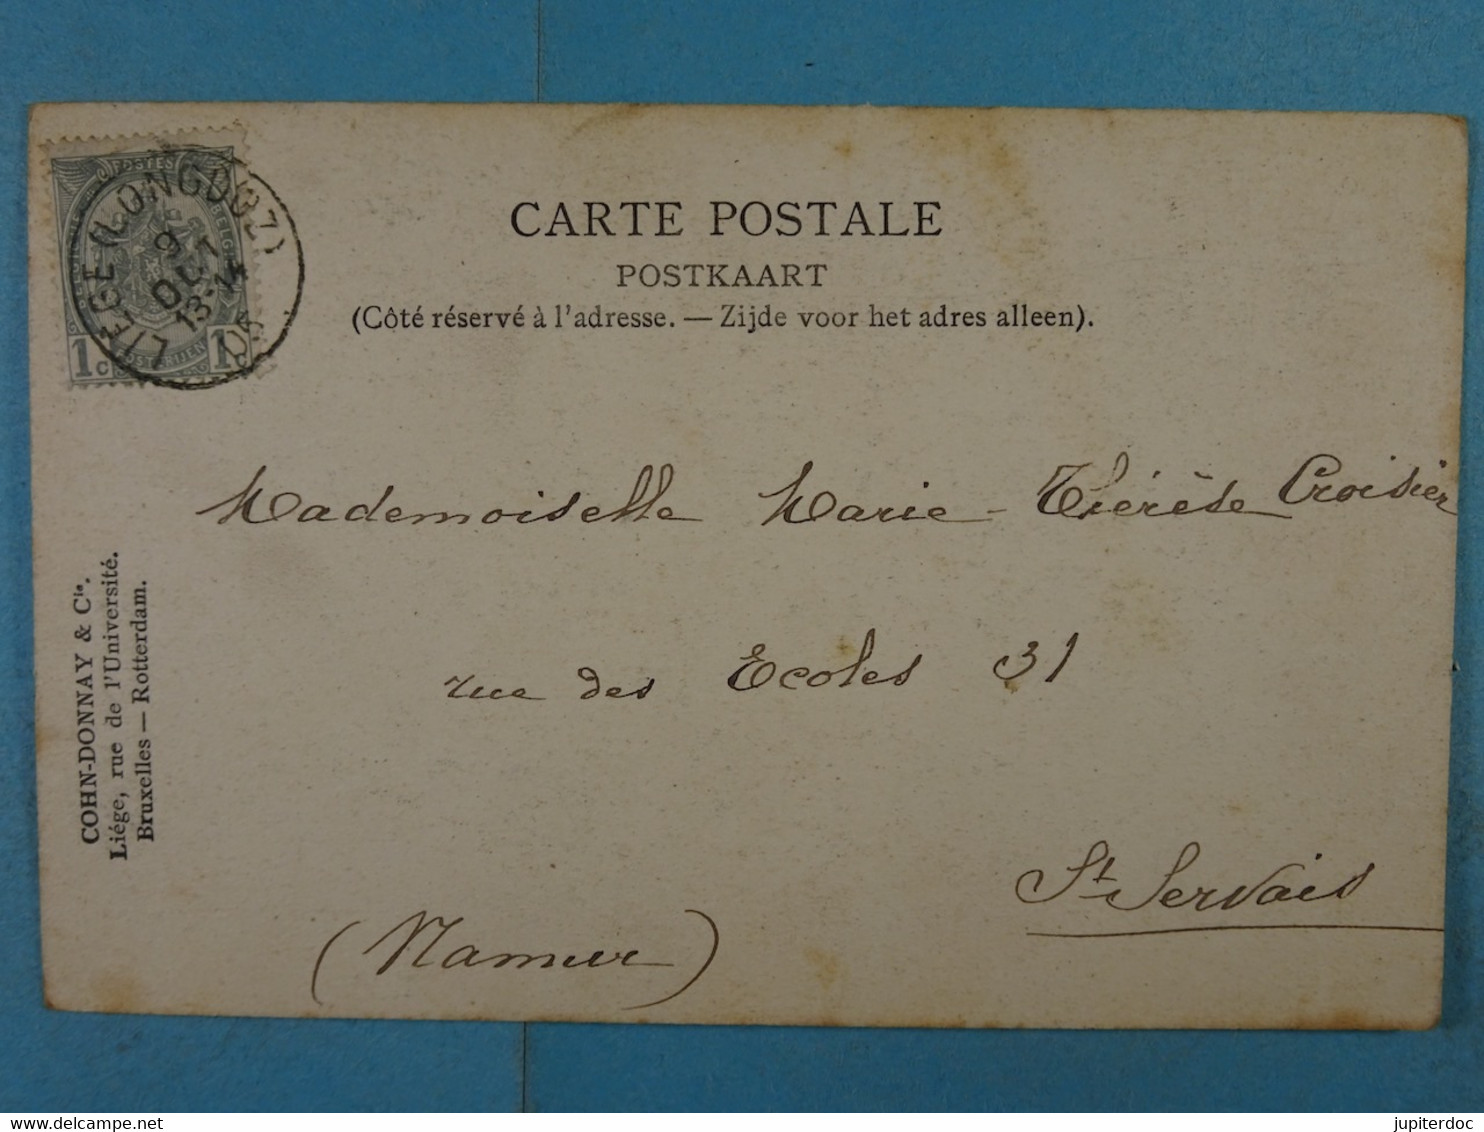 POSTES
BELGI
1c 1c
POSTERIJEN
LIEGE (LONGDOZ)
9
OCT
13-14
05
CARTE POSTALE
POSTKAART
(Côté réservé à l'adresse. — Zijde voor het adres alleen).
Mademoiselle Marie-Thérèse Croisier
rue des Ecoles 31
St Servais
(Namur)
COHN-DONNAY & Cie.
Liége, rue de l'Université.
Bruxelles — Rotterdam.
delcampe.net
jupiterdoc